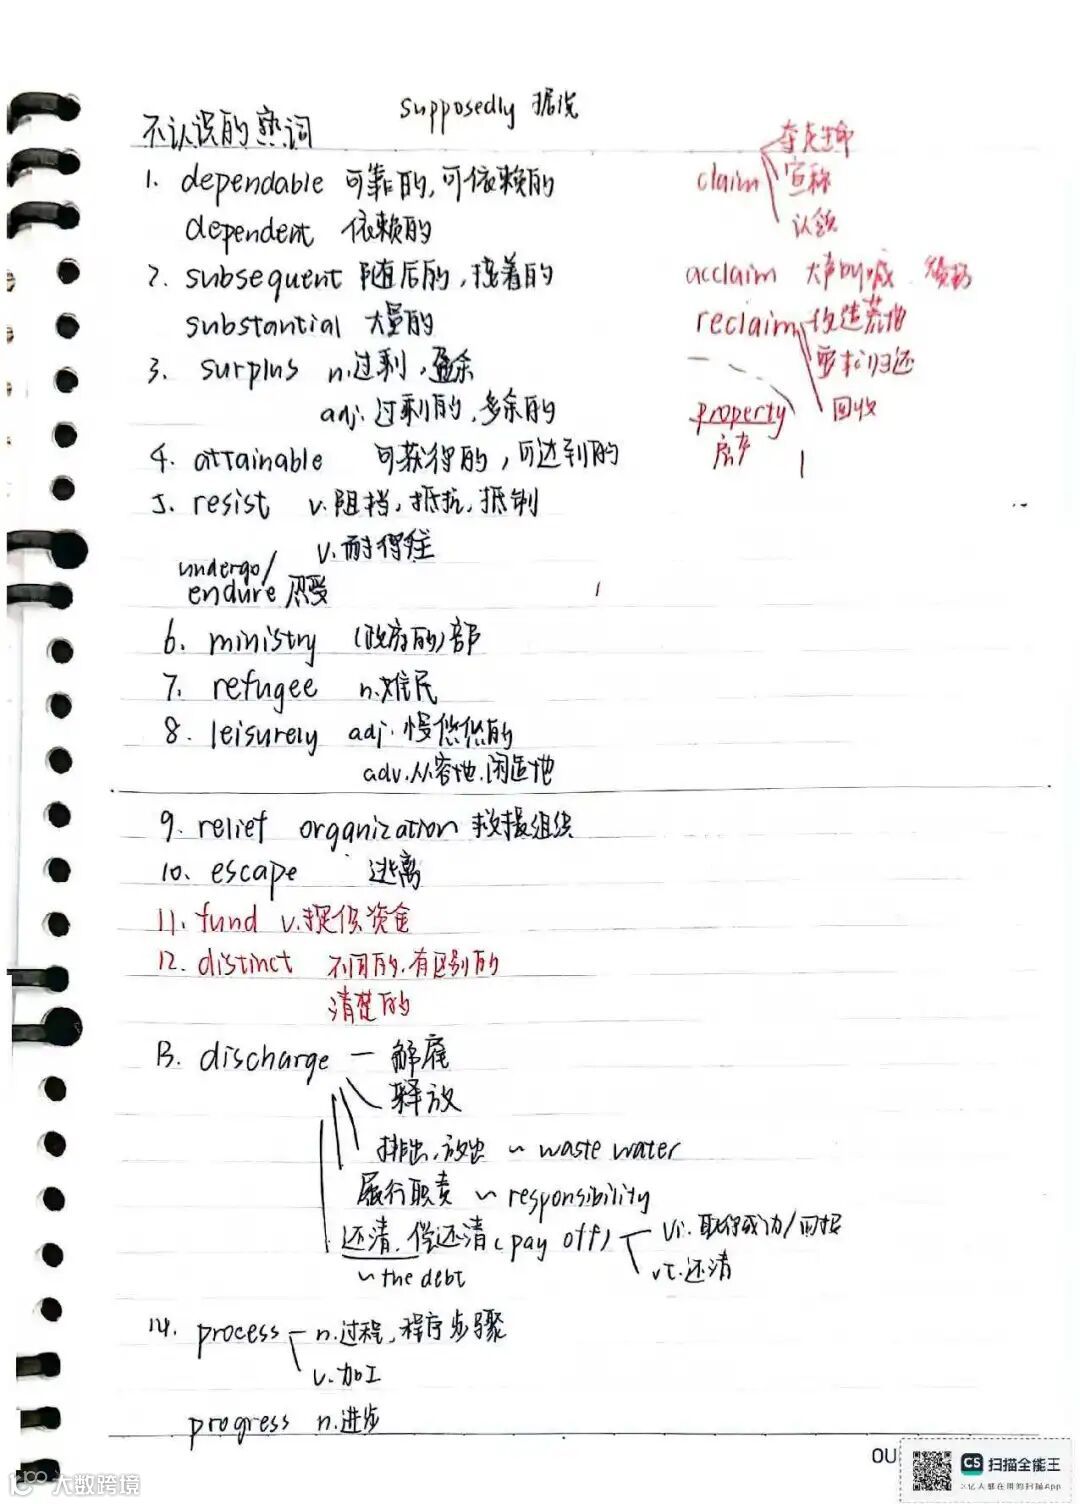 supposedly 据说
不认识的熟词
1. dependable 可靠的,可依赖的
dependent 依赖的
2. subsequent 随后的,接着的
substantial 大量的
3. surplus n.过剩,盈余
adj.过剩的,多余的
4. attainable 可获得的,可达到的
5. resist v.阻挡,抵抗,抵制
v.耐得住
undergo/
endure 忍受
6. ministry (政府的)部
7. refugee n.难民
8. leisurely adj.慢悠悠的
adv.从容地.闲适地
9. relief organization 救援组织
10. escape 逃离
11. fund v.提供资金
12. distinct 不同的.有区别的
清楚的
13. discharge — 解雇
释放
排出,放出 ~ waste water
履行职责 ~ responsibility
还清.偿还清(pay off) vi.取得成功/回报
vt.还清
~ the debt
14. process n.过程,程序步骤
v.加工
progress n.进步
夺走生命
claim 宣称
认领
acclaim 大声叫喊
reclaim 改造荒地
要求归还
回收
property
房产
OU
CS 扫描全能王
3亿人都在用的扫描App
大数跨境